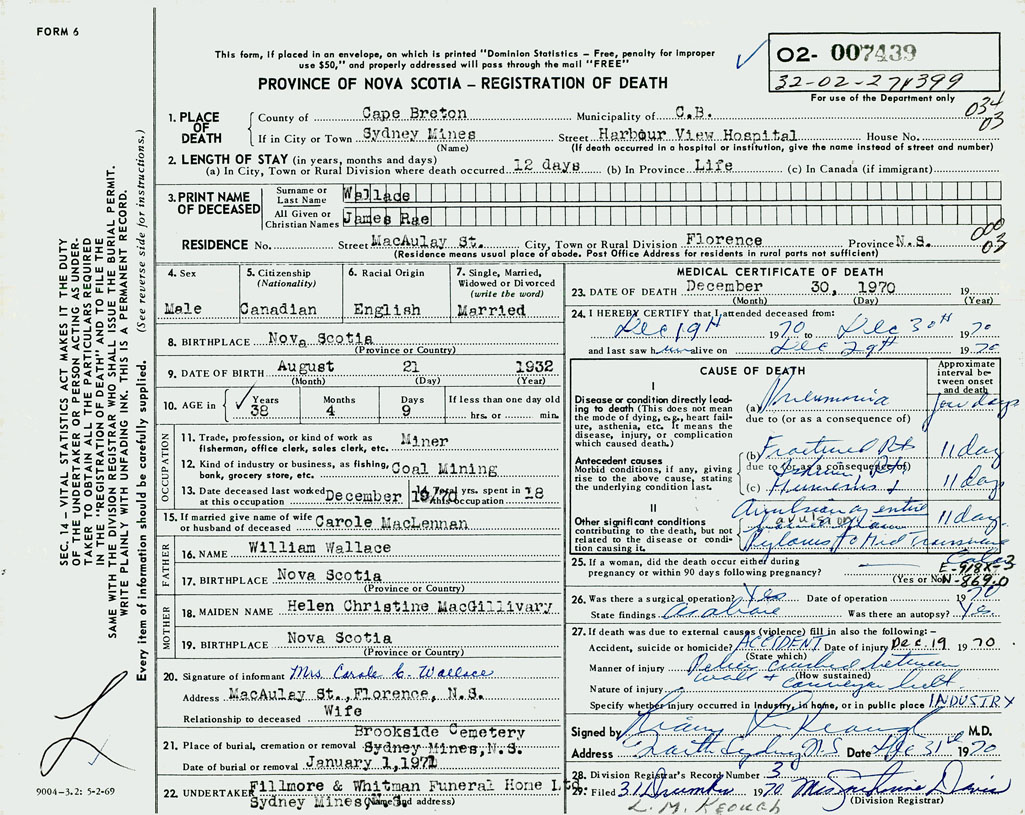 FORM 6
This form, if placed in an envelope, on which is printed "Dominion Statistics – Free, penalty for improper
use $50," and properly addressed will pass through the mail "FREE"
PROVINCE OF NOVA SCOTIA – REGISTRATION OF DEATH
02- 007439
32-02-271399
For use of the Department only
034
03
1. PLACE OF DEATH
County of Cape Breton Municipality of C.B.
If in City or Town Sydney Mines Street Harbour View Hospital House No.
(Name) (If death occurred in a hospital or institution, give the name instead of street and number)
2. LENGTH OF STAY (in years, months and days)
(a) In City, Town or Rural Division where death occurred 12 days (b) In Province Life (c) In Canada (if immigrant)
3. PRINT NAME OF DECEASED
Surname or Last Name Wallace
All Given or Christian Names James Rae
000
03
RESIDENCE No. Street MacAulay St. City, Town or Rural Division Florence Province N.S.
(Residence means usual place of abode. Post Office Address for residents in rural parts not sufficient)
4. Sex Male
5. Citizenship (Nationality) Canadian
6. Racial Origin English
7. Single, Married, Widowed or Divorced (write the word) Married
8. BIRTHPLACE Nova Scotia
(Province or Country)
9. DATE OF BIRTH August 21 1932
(Month) (Day) (Year)
10. AGE in Years 38 Months 4 Days 9 If less than one day old hrs. or min.
OCCUPATION
11. Trade, profession, or kind of work as fisherman, office clerk, sales clerk, etc. Miner
12. Kind of industry or business, as fishing, bank, grocery store, etc. Coal Mining
13. Date deceased last worked at this occupation December 19, yrs. spent in 18
15. If married give name of wife or husband of deceased Carole MacLennan
FATHER
16. NAME William Wallace
17. BIRTHPLACE Nova Scotia
(Province or Country)
MOTHER
18. MAIDEN NAME Helen Christine MacGillivary
19. BIRTHPLACE Nova Scotia
(Province or Country)
20. Signature of informant Mrs Carole C. Wallace
Address MacAulay St., Florence, N.S.
Relationship to deceased Wife
21. Place of burial, cremation or removal Brookside Cemetery
Sydney Mines, N.S.
Date of burial or removal January 1, 1971
22. UNDERTAKER Fillmore & Whitman Funeral Home Ltd.
Sydney Mines, N.S.
(Name and address)
MEDICAL CERTIFICATE OF DEATH
23. DATE OF DEATH December 30, 1970 19
(Month) (Day) (Year)
24. I HEREBY CERTIFY that I attended deceased from:
Dec 19th 1970 to Dec 30th 1970
and last saw him alive on Dec 29th 1970
CAUSE OF DEATH
Approximate interval between onset and death
I
Disease or condition directly leading to death (This does not mean the mode of dying, e.g., heart failure, asthenia, etc. It means the disease, injury, or complication which caused death.)
(a) Pneumonia few days
due to (or as a consequence of)
Antecedent causes
Morbid conditions, if any, giving rise to the above cause, stating the underlying condition last.
(b) Fractured Rt 11 days
due to (or as a consequence of)
(c) Humerus 11 days
II
Other significant conditions
contributing to the death, but not related to the disease or condition causing it.
entire 11 days
avulsion
Pylorus to Mid Transverse
Colon
25. If a woman, did the death occur either during
pregnancy or within 90 days following pregnancy?
(Yes or No)
E-918X-3
N-869.0
26. Was there a surgical operation? Yes Date of operation 1970
State findings As above Was there an autopsy? Yes
27. If death was due to external causes (violence) fill in also the following:–
Accident, suicide or homicide? ACCIDENT Date of injury Dec. 19 1970
(State which)
Manner of injury Pelvis crushed between
(How sustained)
wall + conveyor belt
Nature of injury
Specify whether injury occurred in industry, in home, or in public place INDUSTRY
Signed by M.D.
Address North Sydney NS Date Dec 31st 1970
28. Division Registrar's Record Number 3
29. Filed 31 December 1970 Mrs Davis
(Division Registrar)
L. M. Keough
SEC. 14 – VITAL STATISTICS ACT MAKES IT THE DUTY
OF THE UNDERTAKER OR PERSON ACTING AS UNDER-
TAKER TO OBTAIN ALL THE PARTICULARS REQUIRED
IN THE "REGISTRATION OF DEATH" AND TO FILE THE
SAME WITH THE DIVISION REGISTRAR WHO SHALL ISSUE THE BURIAL PERMIT.
WRITE PLAINLY WITH UNFADING INK. THIS IS A PERMANENT RECORD.
Every item of information should be carefully supplied. (See reverse side for instructions.)
9004–3.2: 5-2-69